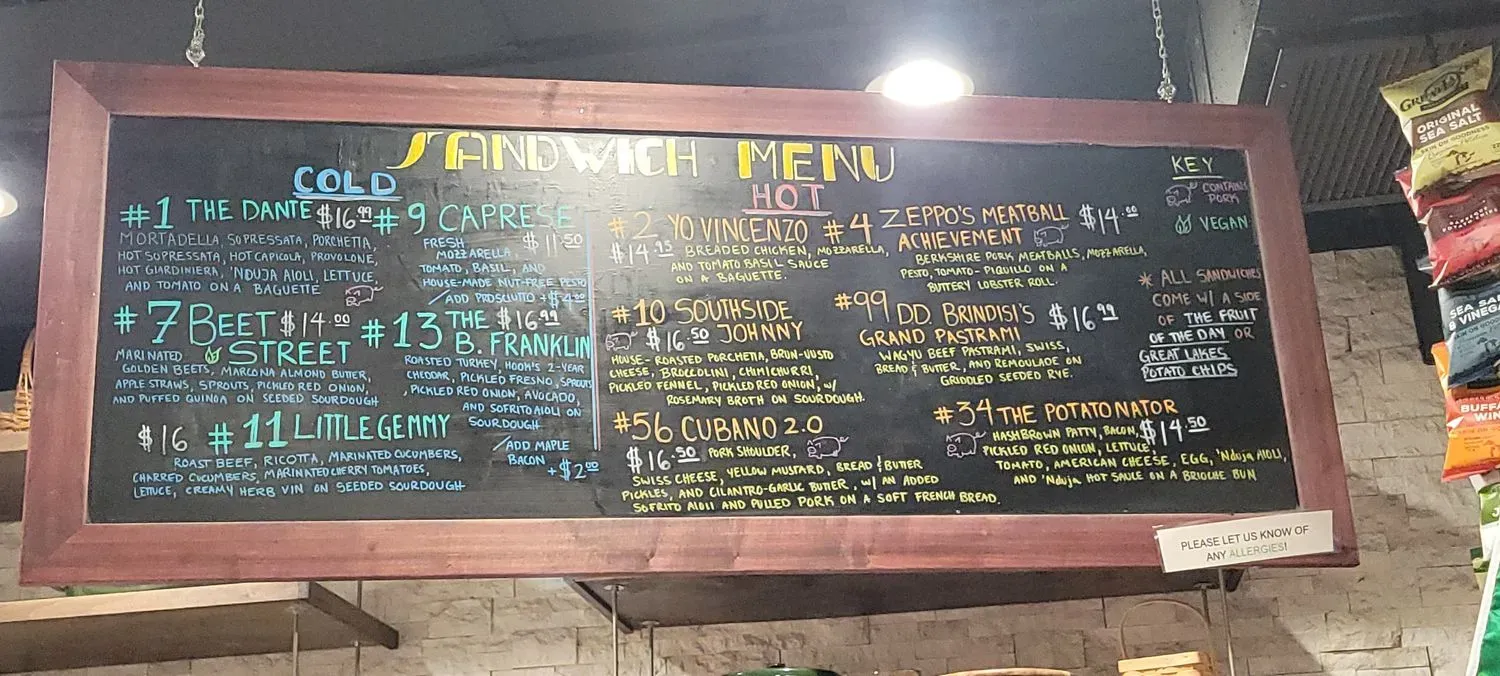 SANDWICH MENU
COLD
#1 THE DANTE $16.99
MORTADELLA, SOPRESSATA, PORCHETTA,
HOT SOPRESSATA, HOT CAPICOLA, PROVOLONE,
HOT GIARDINIERA, 'NDUJA AIOLI, LETTUCE,
AND TOMATO ON A BAGUETTE
#9 CAPRESE
$11.50
FRESH
MOZZARELLA,
TOMATO, BASIL, AND
HOUSE-MADE NUT-FREE PESTO
/ADD PROSCIUTTO +$4.00
#7 BEET STREET $14.00
MARINATED
GOLDEN BEETS, MARCONA ALMOND BUTTER,
APPLE STRAWS, SPROUTS, PICKLED RED ONION,
AND PUFFED QUINOA ON SEEDED SOURDOUGH
#13 THE B. FRANKLIN $16.99
ROASTED TURKEY, HOOK'S 2-YEAR
CHEDDAR, PICKLED FRESNO, SPROUTS
PICKLED RED ONION, AVOCADO,
AND SOFRITO AIOLI ON
SOURDOUGH
/ADD MAPLE
BACON
+$2.00
$16 #11 LITTLE GEMMY
ROAST BEEF, RICOTTA, MARINATED CUCUMBERS,
CHARRED CUCUMBERS, MARINATED CHERRY TOMATOES,
LETTUCE, CREAMY HERB VIN ON SEEDED SOURDOUGH
HOT
#2 YO VINCENZO
$14.95 BREADED CHICKEN, MOZZARELLA,
AND TOMATO BASIL SAUCE
ON A BAGUETTE.
#4 ZEPPO'S MEATBALL $14.00
ACHIEVEMENT
BERKSHIRE PORK MEATBALLS, MOZZARELLA,
PESTO, TOMATO-PIQUILLO ON A
BUTTERY LOBSTER ROLL.
#10 SOUTHSIDE
$16.50 JOHNNY
HOUSE-ROASTED PORCHETTA, BRUN-UUSTO
CHEESE, BROCCOLINI, CHIMICHURRI
PICKLED FENNEL, PICKLED RED ONION, W/
ROSEMARY BROTH ON SOURDOUGH.
#99 DD. BRINDISI'S $16.99
GRAND PASTRAMI
WAGYU BEEF PASTRAMI, SWISS,
BREAD & BUTTER, AND REMOULADE ON
GRIDDLED SEEDED RYE.
#56 CUBANO 2.0
$16.50 PORK SHOULDER,
SWISS CHEESE, YELLOW MUSTARD, BREAD & BUTTER
PICKLES, AND CILANTRO-GARLIC BUTTER, W/ AN ADDED
SOFRITO AIOLI AND PULLED PORK ON A SOFT FRENCH BREAD.
#34 THE POTATO NATOR
HASHBROWN PATTY, BACON, $14.50
PICKLED RED ONION, LETTUCE,
TOMATO, AMERICAN CHEESE, EGG, 'Nduja AIOLI,
AND 'Nduja HOT SAUCE ON A BRIOCHE BUN
KEY
CONTAINS
PORK
VEGAN
* ALL SANDWICHES
COME W/ A SIDE
OF THE FRUIT
OF THE DAY OR
GREAT LAKES
POTATO CHIPS
PLEASE LET US KNOW OF
ANY ALLERGIES!
ORIGINAL
SEA SALT
SEA SALT
& VINEGAR